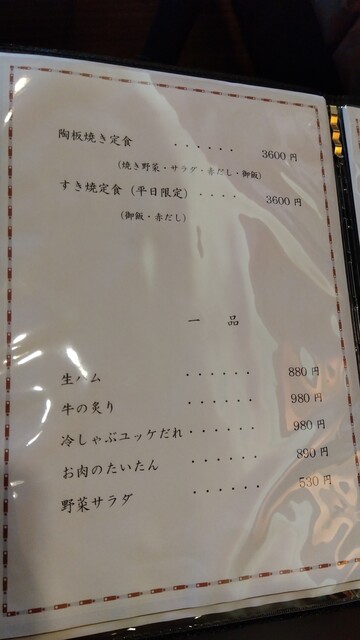 陶板焼き定食 ・・・・・・ 3600円
（焼き野菜・サラダ・赤だし・御飯）
すき焼定食（平日限定）・・・・ 3600円
（御飯・赤だし）
一 品
生ハム ・・・・・・ 880円
牛の炙り ・・・・・・ 980円
冷しゃぶユッケだれ ・・・・・・ 980円
お肉のたいたん ・・・・・・ 890円
野菜サラダ ・・・・・・ 530円